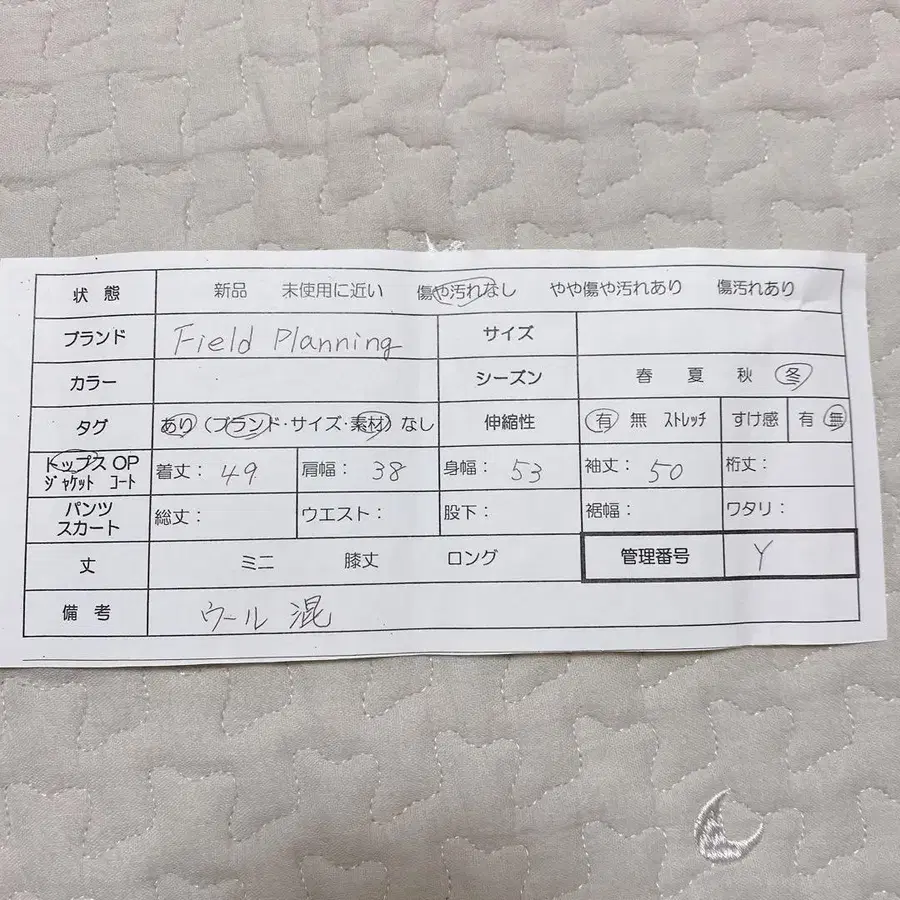 状態 新品 未使用に近い 傷や汚れなし やや傷や汚れあり 傷汚れあり
ブランド Field Planning サイズ
カラー シーズン 春 夏 秋 冬
タグ あり(ブランド・サイズ・素材)なし 伸縮性 有 無 ストレッチ すけ感 有 無
トップス OP
ジャケット コート
着丈: 49 肩幅: 38 身幅: 53 袖丈: 50 裄丈:
パンツ
スカート
総丈: ウエスト: 股下: 裾幅: ワタリ:
丈 ミニ 膝丈 ロング 管理番号 Y
備考 ウール 混